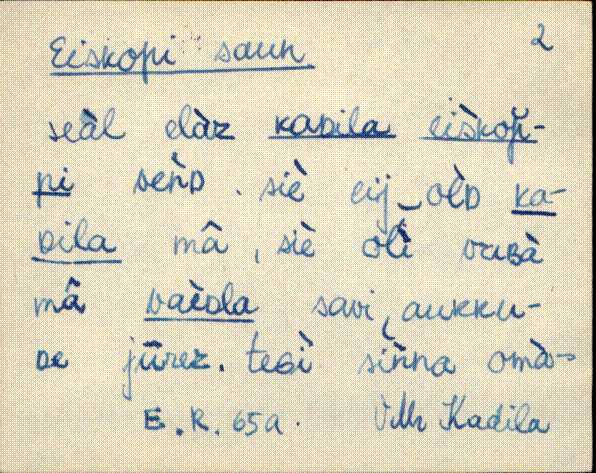 Eiskopi saun 2
seàl elàz kaᴅila eìškop̆-
pi veǹᴅ. siè eij‿olᴅ̀ ka-
ᴅila mâ, siè olì vaʙà
mâ vaèᴅla savi, aukku-
ᴅe jūrez. teɢì siǹna omà-
E.R. 65a. Kadila